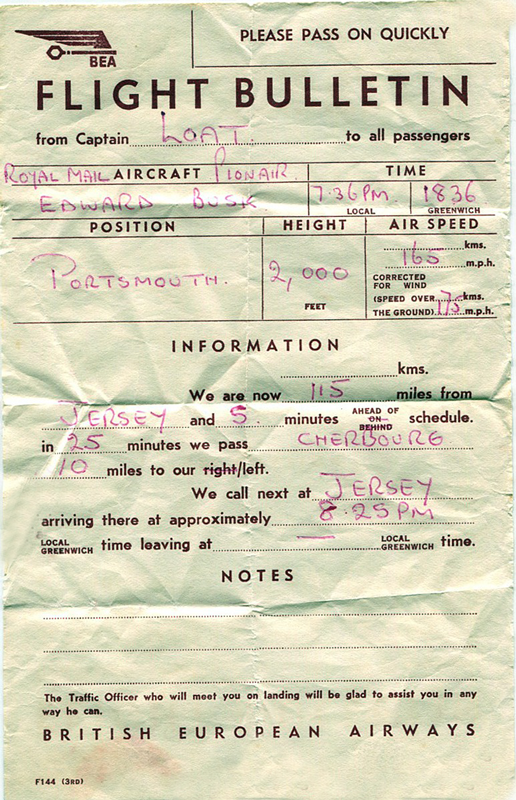 BEA
PLEASE PASS ON QUICKLY
FLIGHT BULLETIN
from Captain LOAT. to all passengers
ROYAL MAIL AIRCRAFT PIONAIR. TIME
EDWARD BUSK 7.36PM. 1836
LOCAL GREENWICH
POSITION HEIGHT AIR SPEED
PORTSMOUTH. 2,000 FEET
kms.
165 m.p.h.
CORRECTED
FOR WIND
(SPEED OVER kms.
THE GROUND) 175 m.p.h.
INFORMATION
kms.
We are now 115 miles from
JERSEY and 5. minutes AHEAD OF ON BEHIND schedule.
in 25 minutes we pass CHERBOURG
10 miles to our right/left.
We call next at JERSEY
arriving there at approximately 8.25PM
LOCAL GREENWICH time leaving at — LOCAL GREENWICH time.
NOTES
The Traffic Officer who will meet you on landing will be glad to assist you in any
way he can.
BRITISH EUROPEAN AIRWAYS
F144 (3RD)